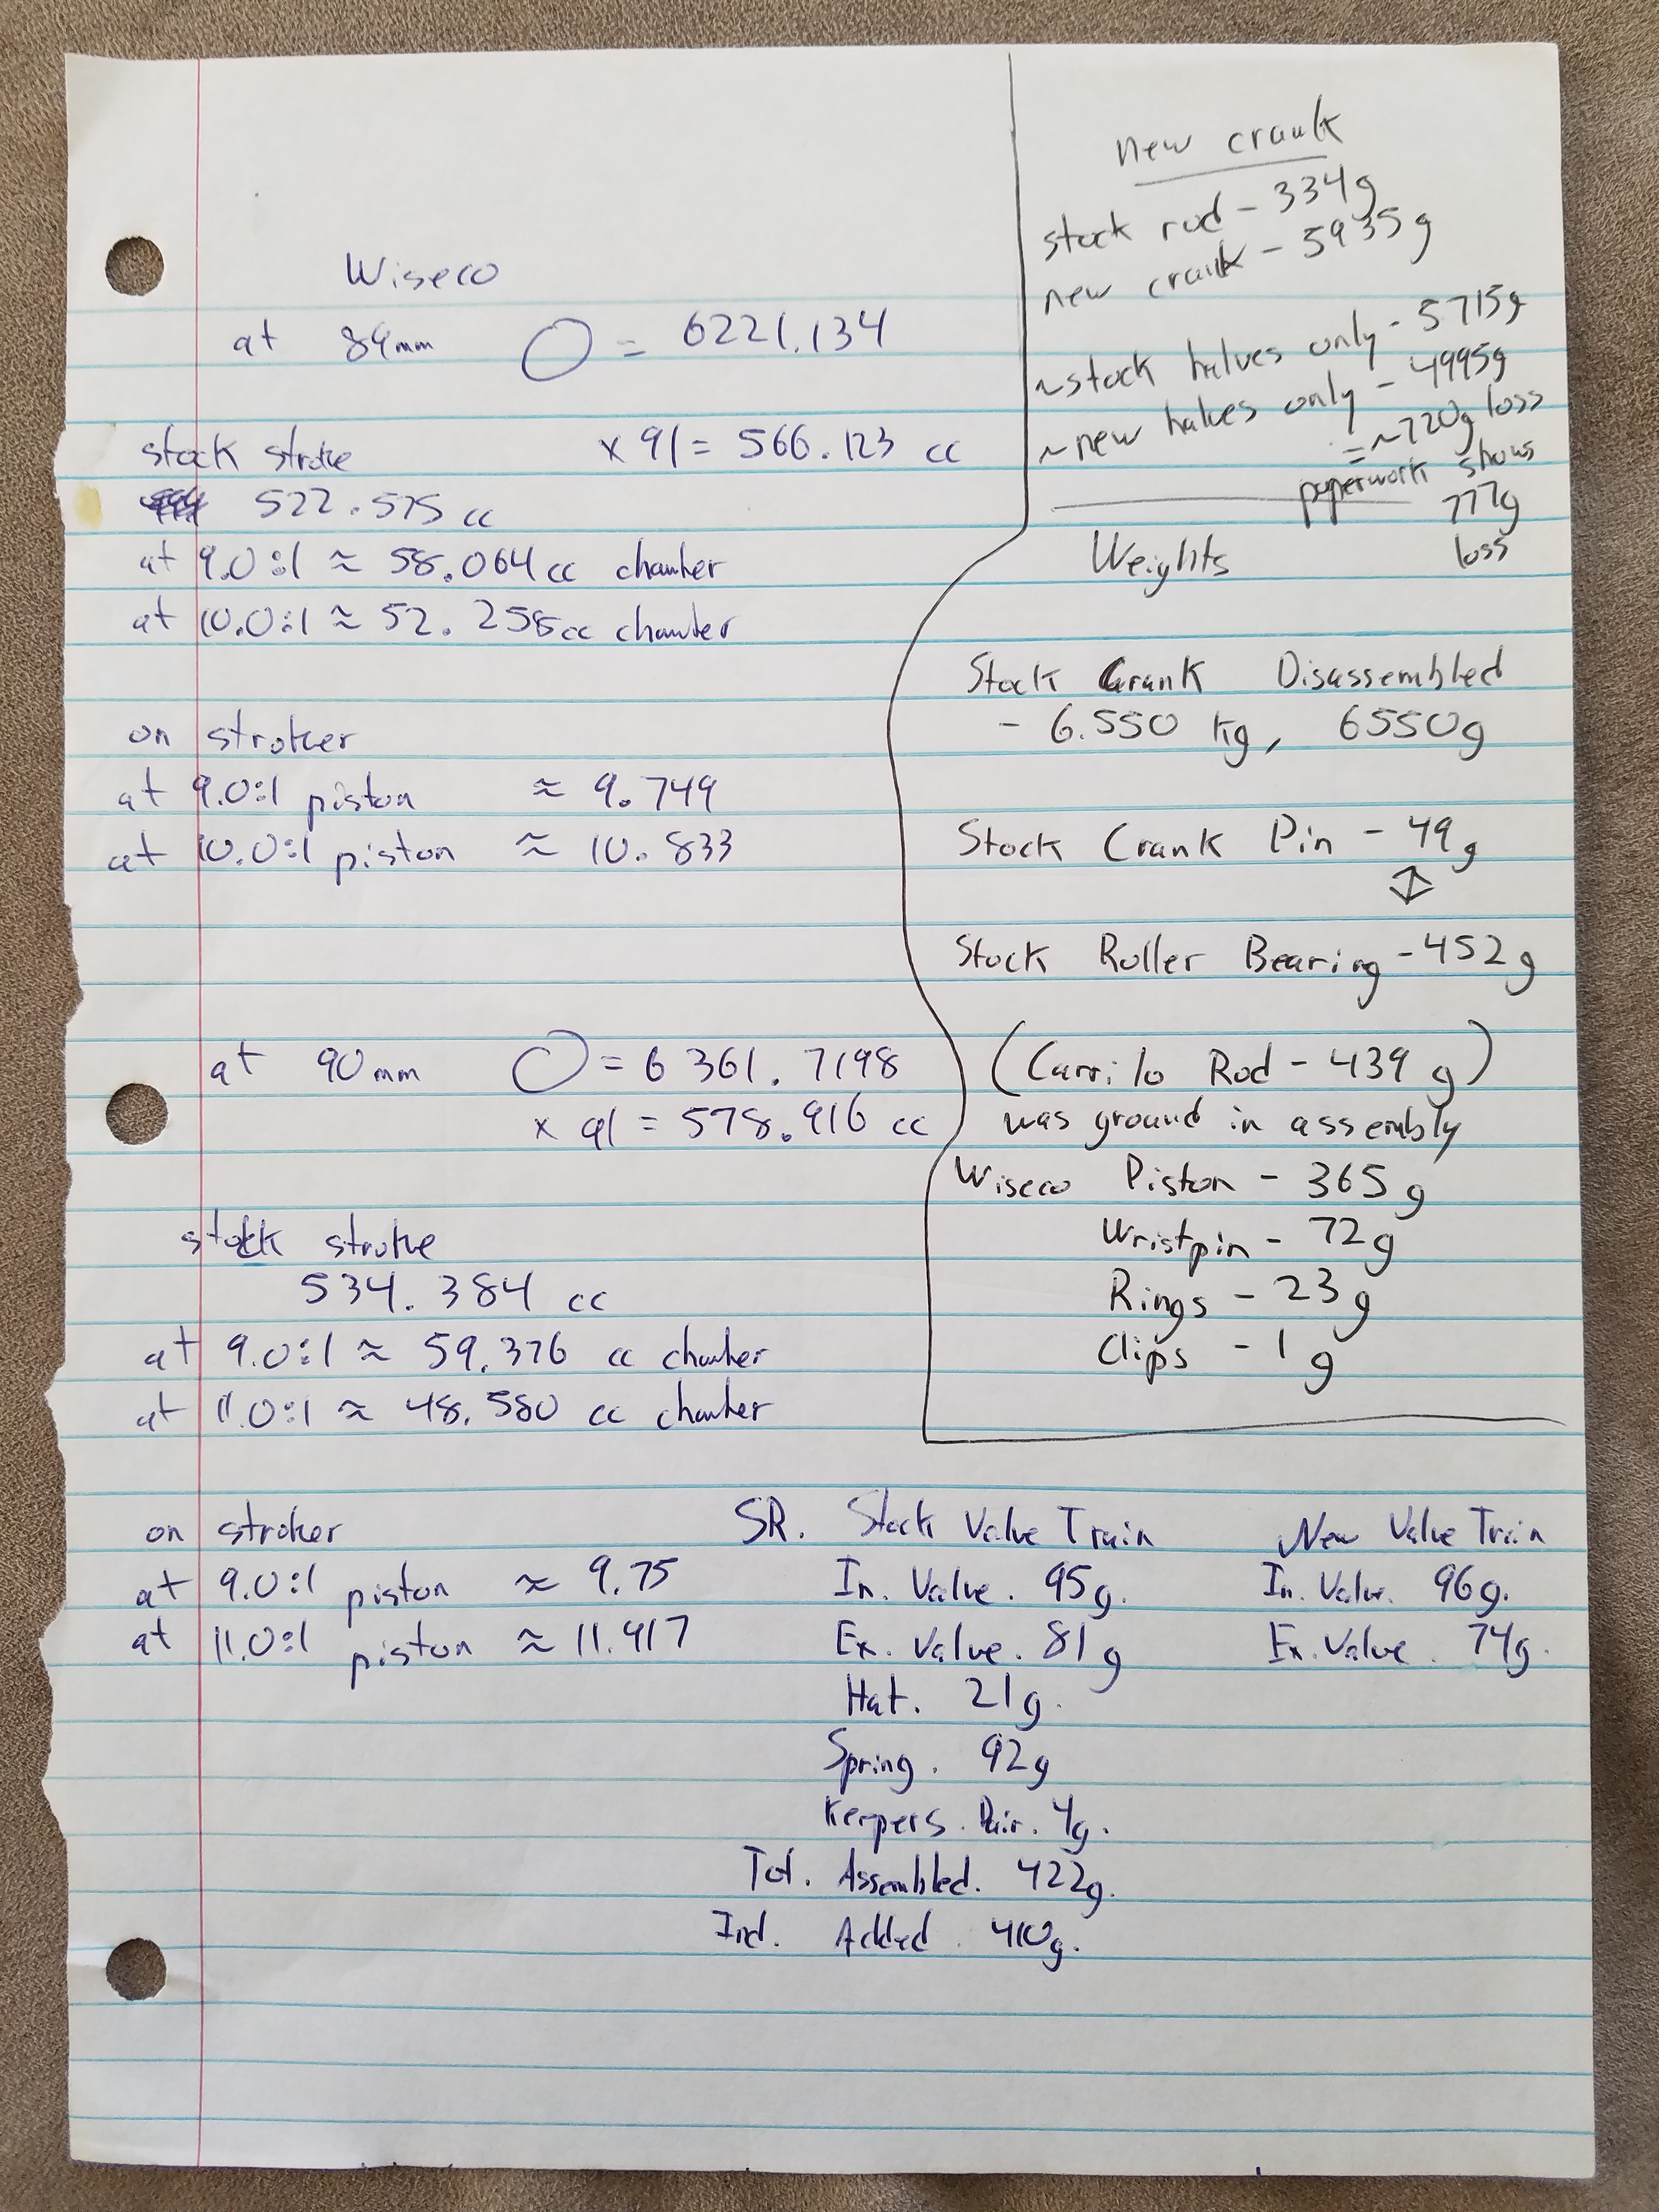 Wiseco
at 89mm O = 6221.134
stock stroke x 91 = 566.123 cc
522.575 cc
at 9.0:1 ≈ 58.064 cc chamber
at 10.0:1 ≈ 52.258 cc chamber
on stroker
at 9.0:1 piston ≈ 9.749
at 10.0:1 piston ≈ 10.833
at 90mm O = 6361.7198
x 91 = 578.916 cc
stock stroke
534.384 cc
at 9.0:1 ≈ 59.376 cc chamber
at 11.0:1 ≈ 48.580 cc chamber
on stroker
at 9.0:1 piston ≈ 9.75
at 11.0:1 piston ≈ 11.917
new crank
stock rod - 334g
new crank - 5935g
~stock halves only - 5715g
~new halves only - 4995g
= ~720g loss
paperwork shows
777g
loss
Weights
Stock Crank Disassembled
- 6.550 kg, 6550g
Stock Crank Pin - 49g
↕
Stock Roller Bearing - 452g
(Carrilo Rod - 439 g)
was ground in assembly
Wiseco Piston - 365g
Wristpin - 72g
Rings - 23g
Clips - 1g
SR. Stock Valve Train
In. Valve. 95g.
Ex. Valve. 81g
Hat. 21g.
Spring. 92g
Keepers. Pair. 4g.
Tot. Assembled. 422g.
Ind. Added. 410g.
New Valve Train
In. Valve. 96g.
Ex. Valve. 74g.